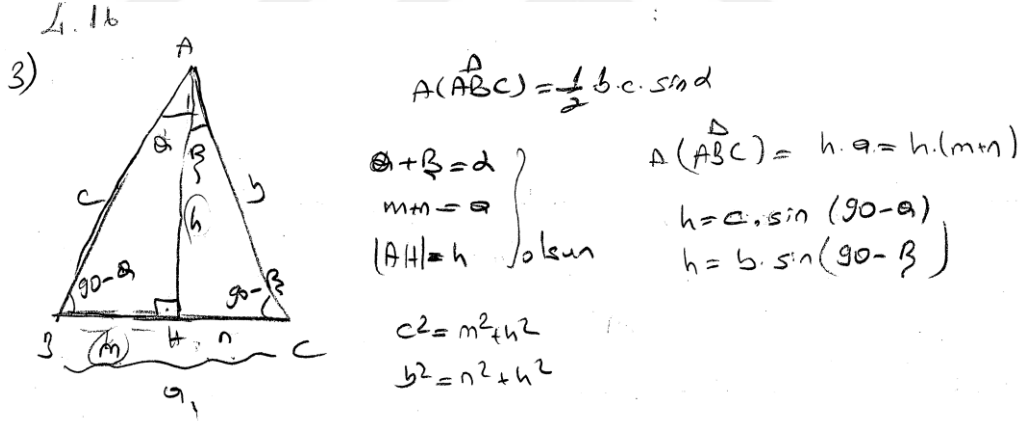 L.16
3)
A
θ β
c b
h
90-θ 90-β
B m H n C
a
A(ABC) = 1/2 b.c.sinα
θ+β=α
m+n=a
|AH|=h
olsun
c²=m²+h²
b²=n²+h²
A(ABC)= h.a = h.(m+n)
h=c.sin(90-θ)
h=b.sin(90-β)